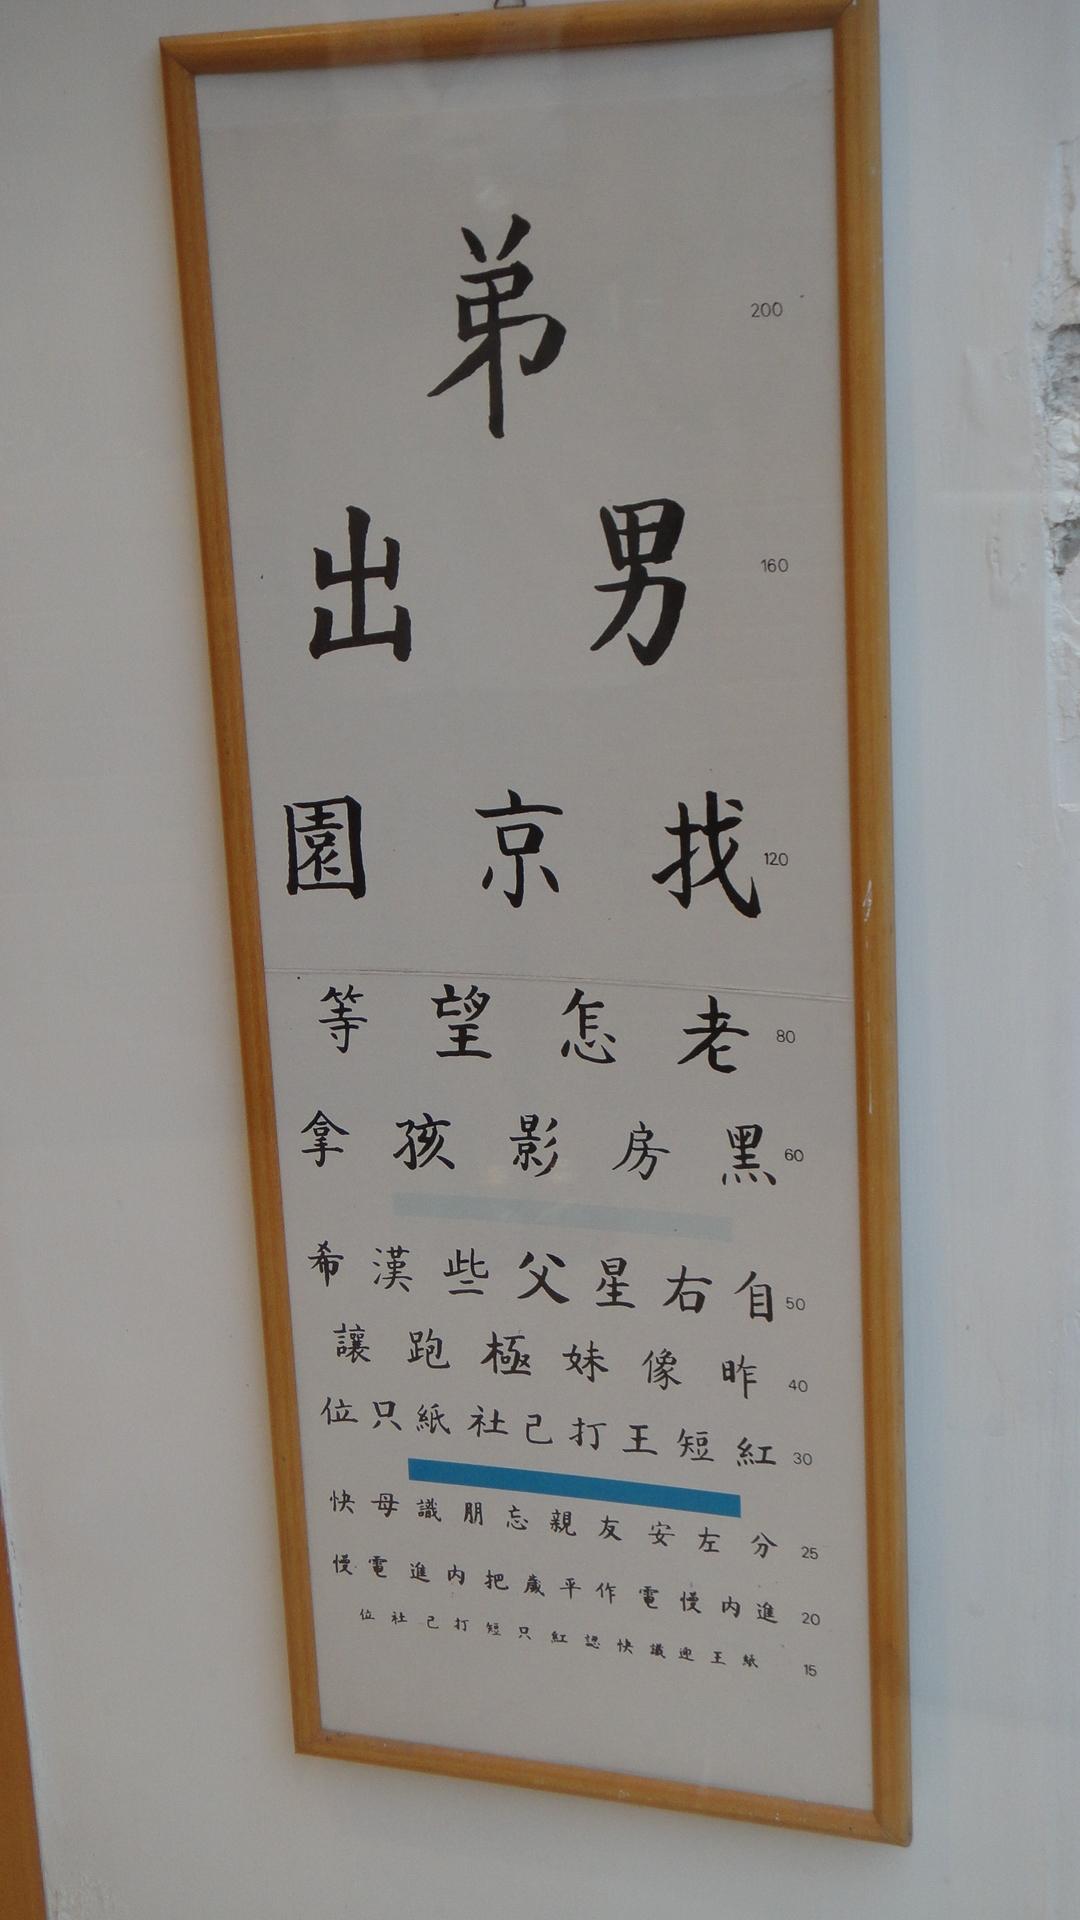 弟 200
出 男 160
園 京 找 120
等 望 怎 老 80
拿 孩 影 房 黑 60
希 漢 些 父 星 右 自 50
讓 跑 極 妹 像 昨 40
位 只 紙 社 己 打 王 短 紅 30
快 母 識 朋 忘 親 友 安 左 分 25
慢 電 進 內 把 歲 平 作 電 慢 內 進 20
位 社 己 打 短 只 紅 認 快 識 迎 王 紙 15